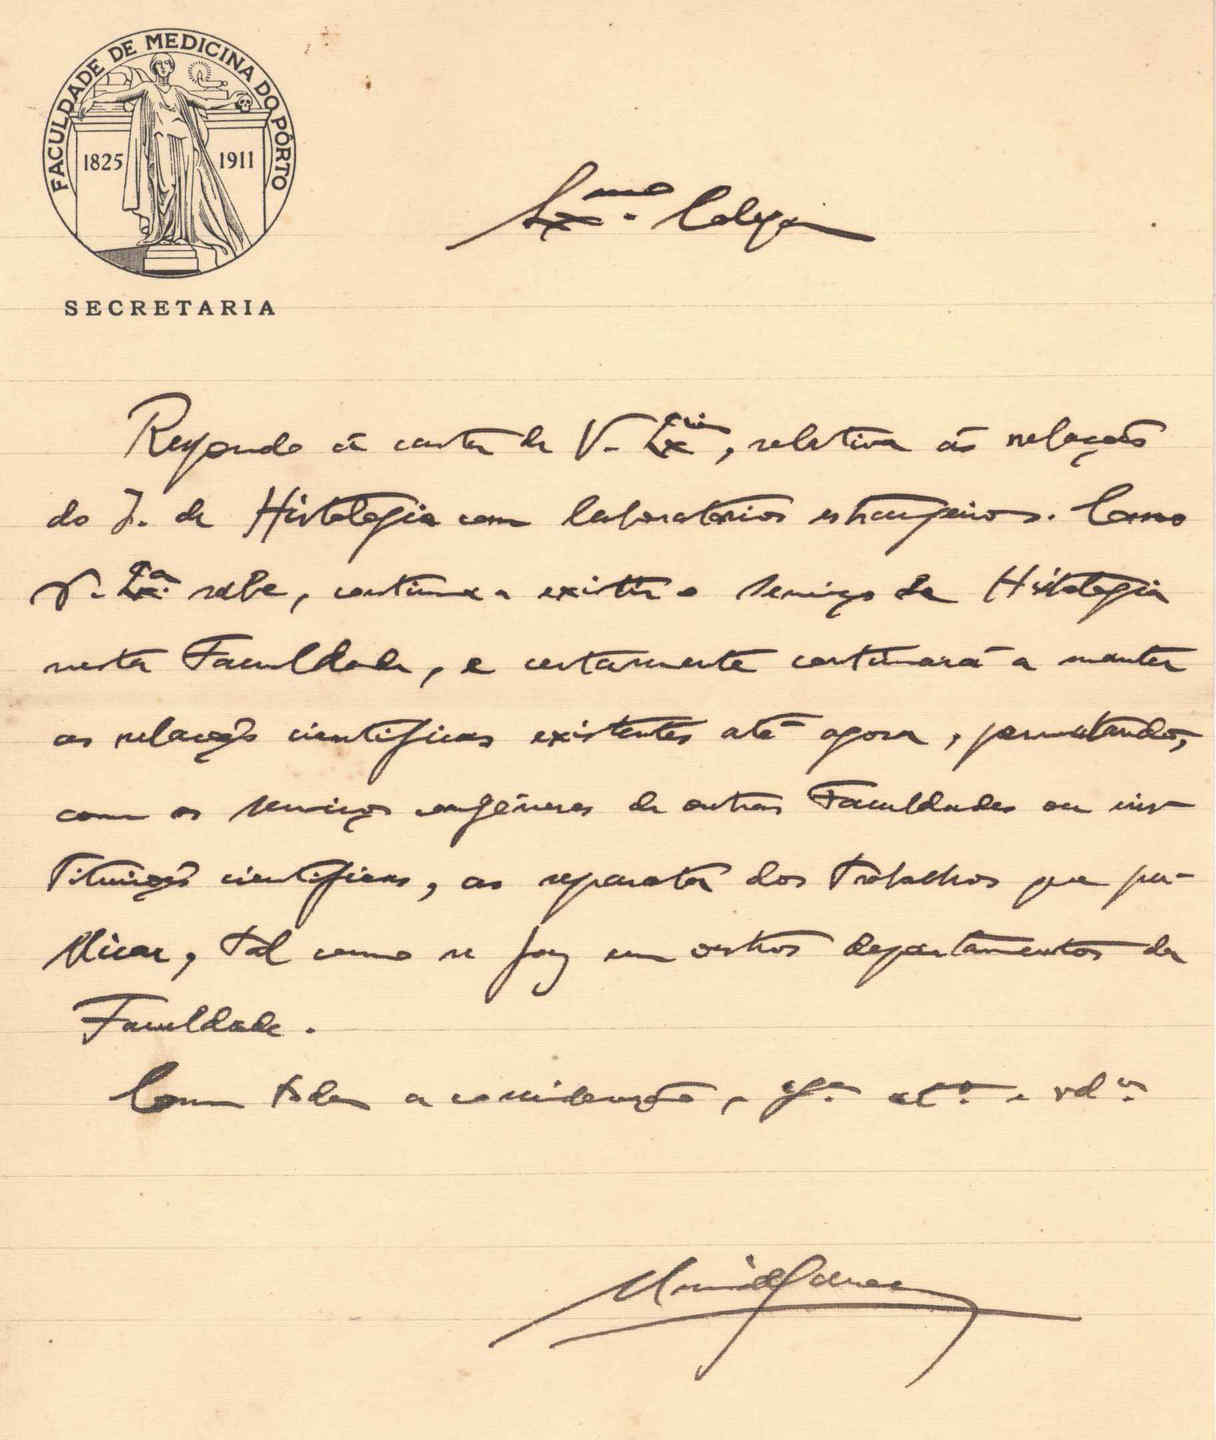 FACULDADE DE MEDICINA DO PÔRTO
1825 1911
SECRETARIA
Ex.mo Colega
Respondo á carta de V. Ex.cia, relativa ás relações
do I. de Histologia com laboratórios estrangeiros. Como
V. Ex.a sabe, continua a existir o serviço de Histologia
nesta Faculdade, e certamente continuará a manter
as relações científicas existentes até agora, permutando,
com os serviços congéneres de outras Faculdades ou ins-
tituições científicas, as separatas dos trabalhos que pu-
blicar, tal como se faz em outros departamentos da
Faculdade.
Com toda a consideração, at.o e